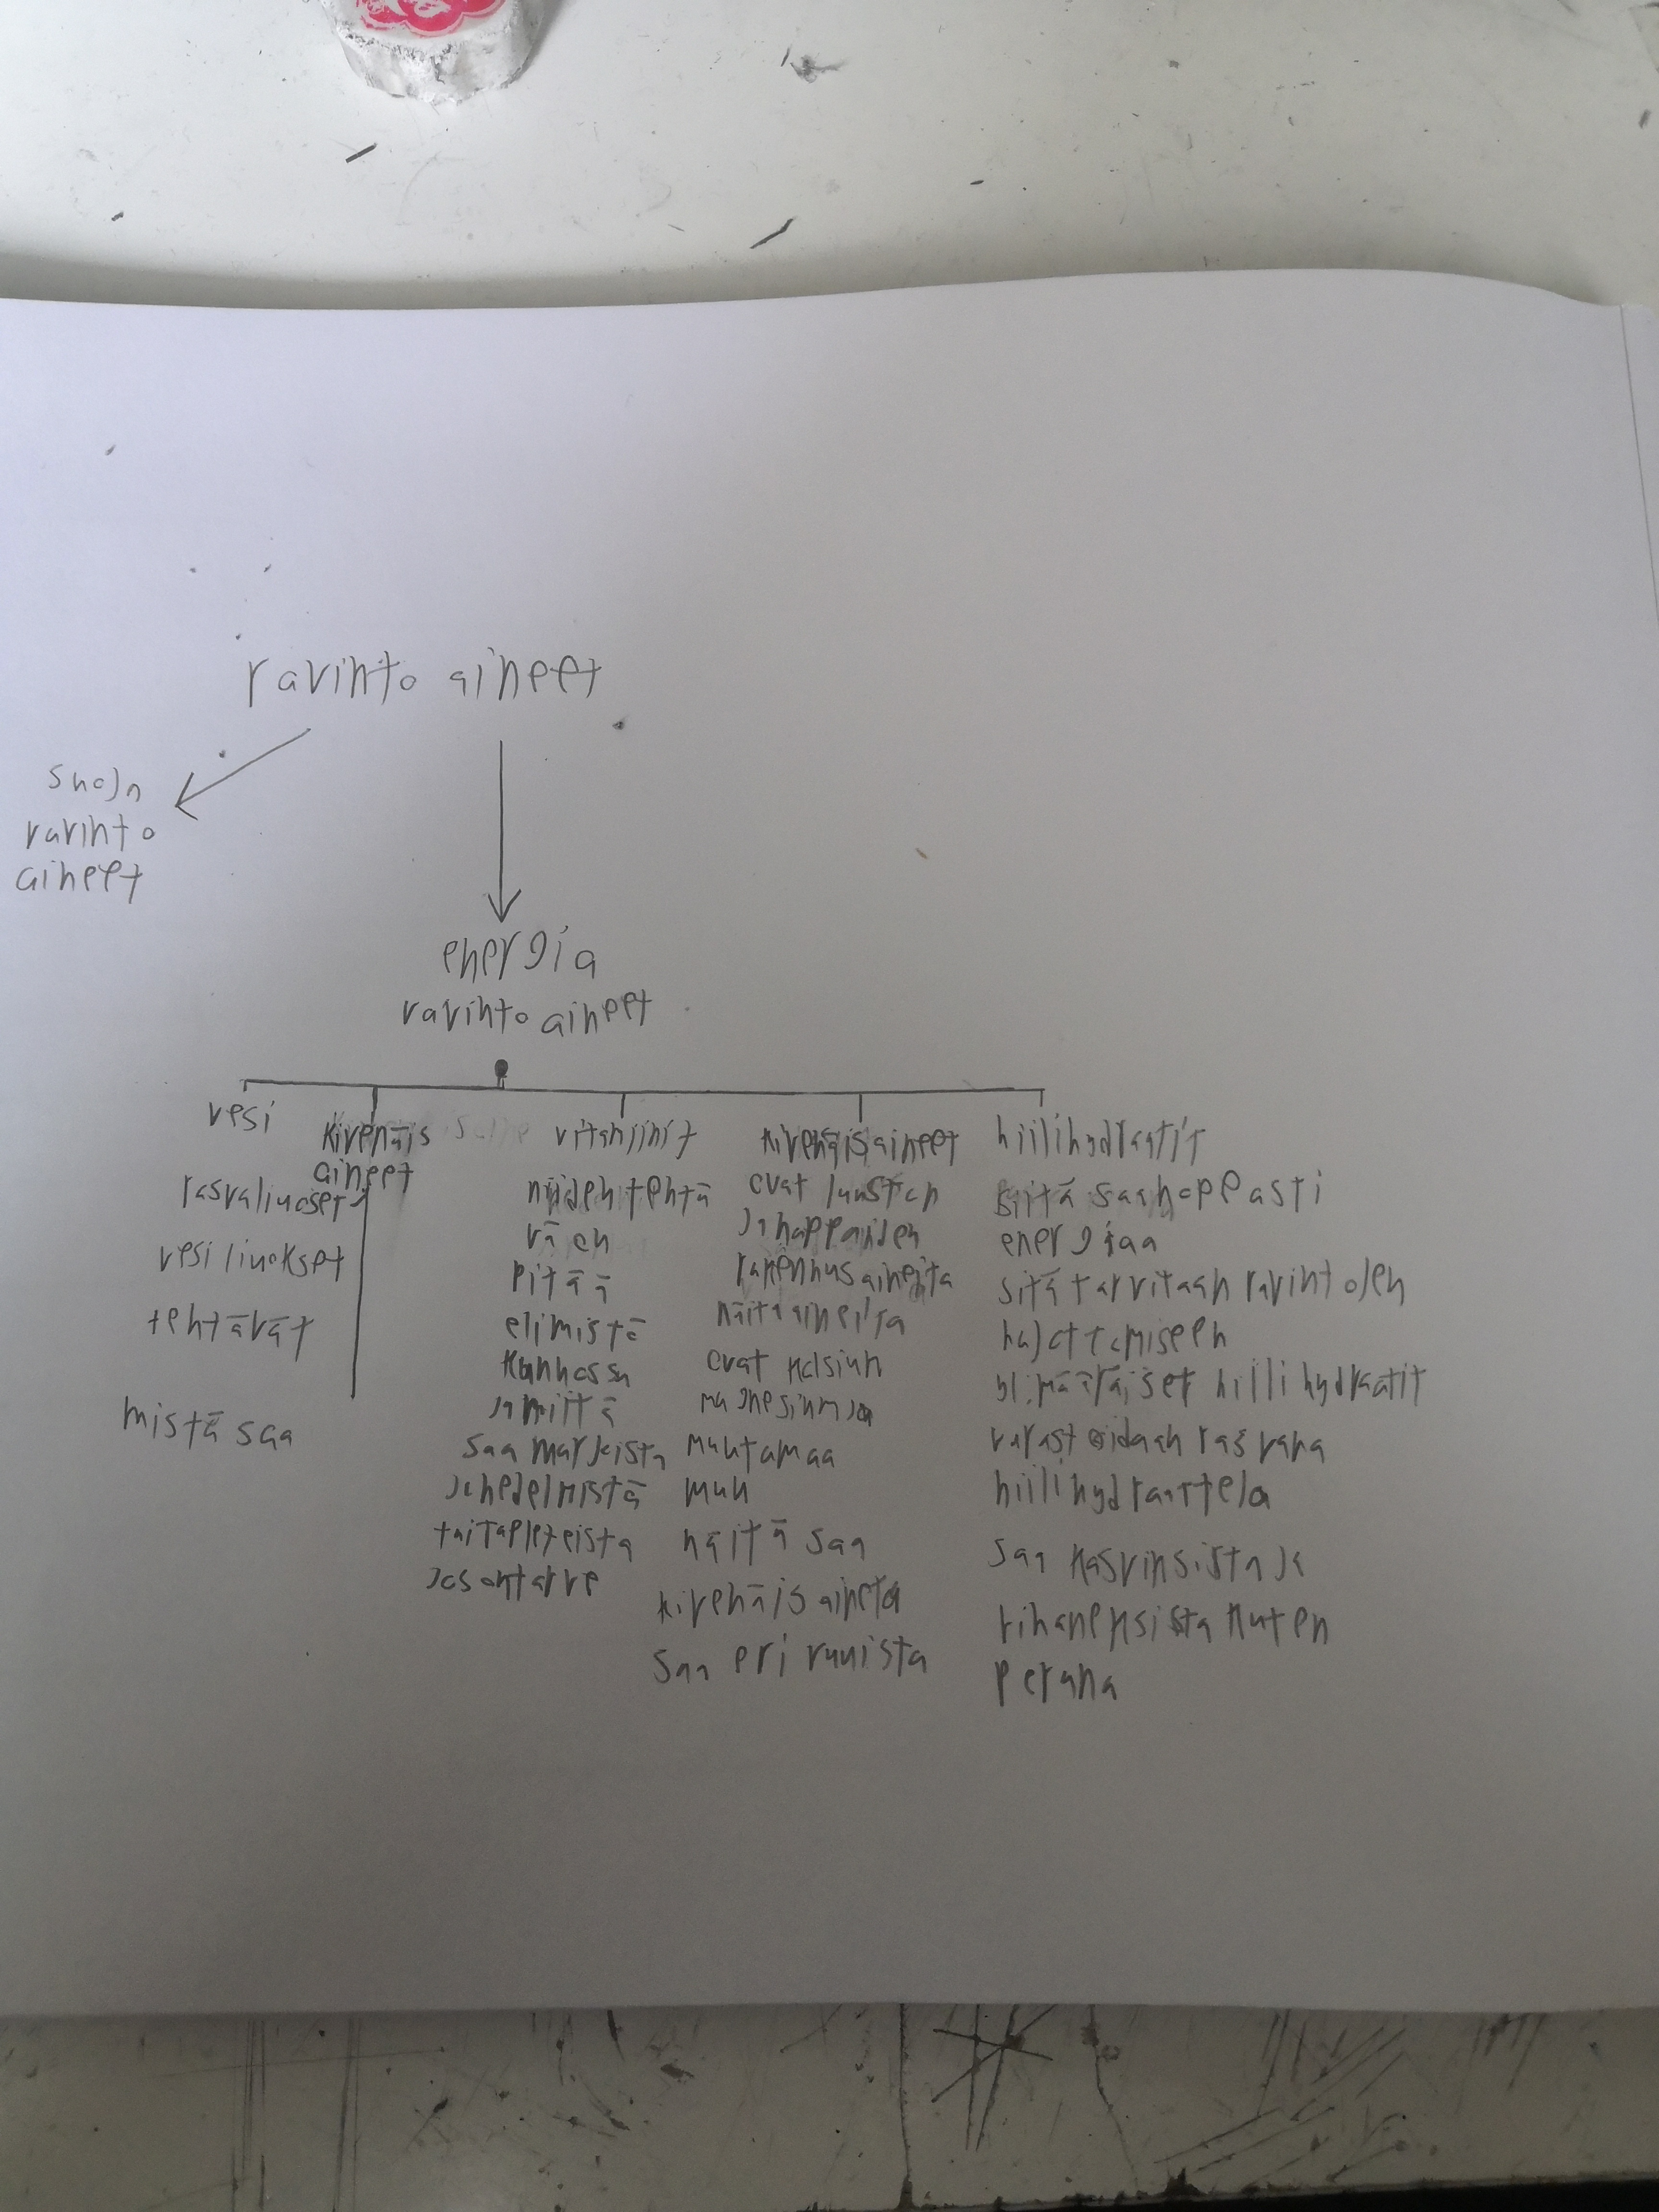 ravinto aineet
suoja
ravinto
aineet
energia
ravinto aineet
vesi
rasvaliuoset
vesi liuokset
tehtävät
mistä saa
kivenäis
aineet
vitamjinit
niiden tehtä
vä on
pitää
elimistö
kunnossa
ja mittä
saa marjoista
ja hedelmistä
tai tapleteista
jos ontarve
kivenäis aineet
ovat luuston
ja happaiden
rakennus aineita
näitä aineita
ovat kalsium
magnesium ja
muutamaa
muu
näitä saa
kivenäis aineta
saa eri ruuista
hiilihydraatit
siitä saa nopeasti
energiaa
sitä tarvitaan ravintojen
hajottomiseen
ylimääräiset hiilihydraatit
varastoidaan rasvana
hiilihydraatteja
saa kasvinsista ja
vihaneksista kuten
perana